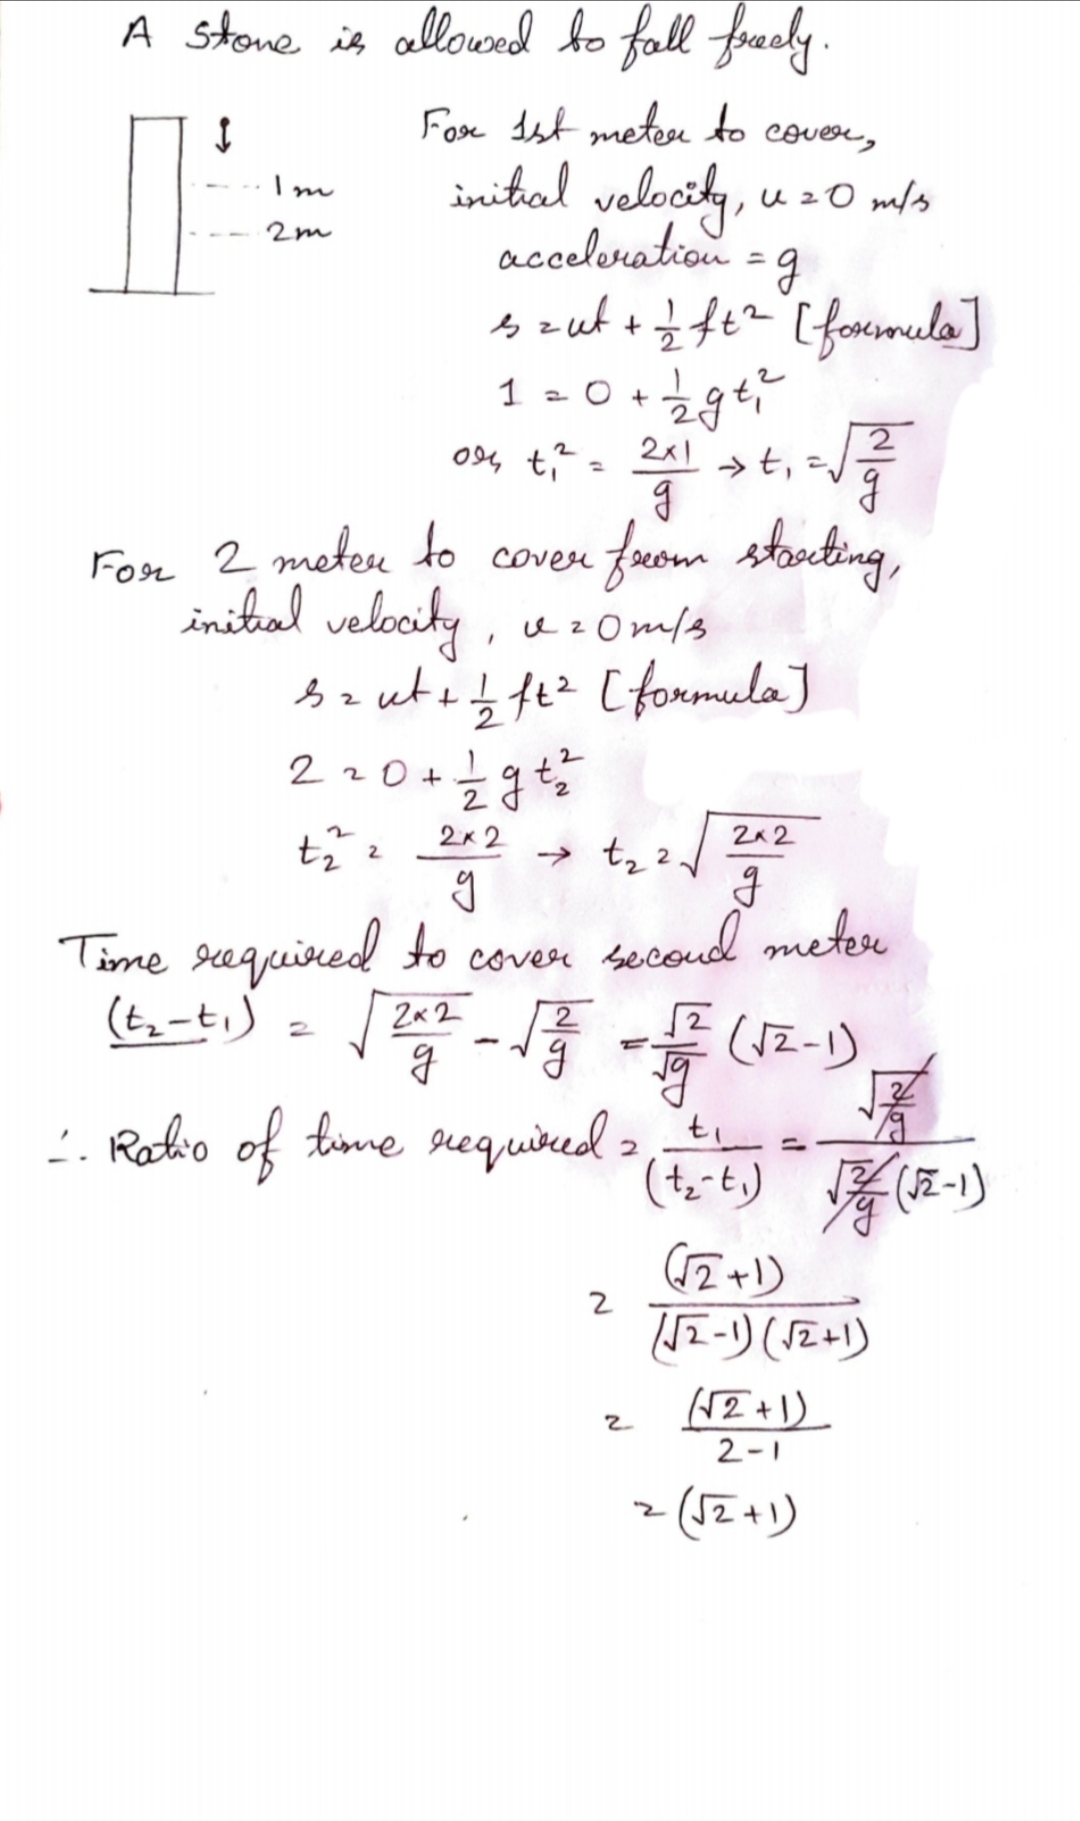 A stone is allowed to fall freely.
1m
2m
For 1st meter to cover,
initial velocity, u = 0 m/s
acceleration = g
s = ut + 1/2 ft² [formula]
1 = 0 + 1/2 g t₁²
or, t₁² = 2×1/g → t₁ = √(2/g)
For 2 meter to cover from starting,
initial velocity, u = 0 m/s
s = ut + 1/2 ft² [formula]
2 = 0 + 1/2 g t₂²
t₂² = 2×2/g → t₂ = √(2×2/g)
Time required to cover second meter
(t₂-t₁) = √(2×2/g) - √(2/g) = √2/√g (√2-1)
∴ Ratio of time required = t₁/(t₂-t₁) = √(2/g)/√(2/g)(√2-1)
= (√2+1)/(√2-1)(√2+1)
= (√2+1)/2-1
= (√2+1)